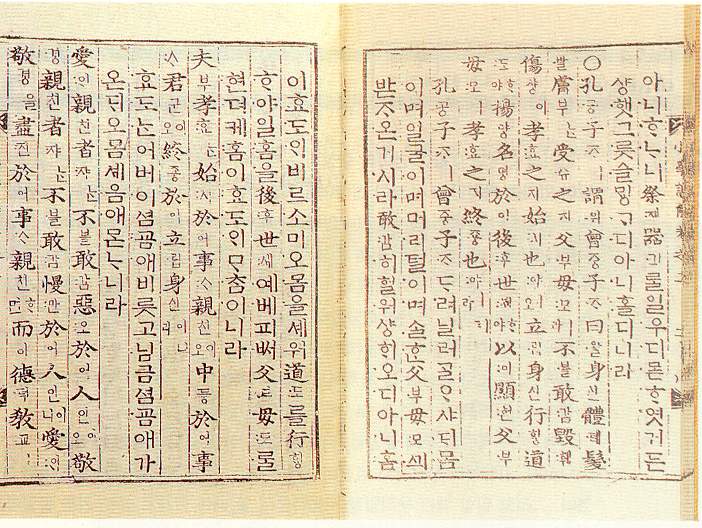 아니ᄒᆞᄂᆞ니祭졔器긔ᄅᆞᆯ일우디몯ᄒᆞ엿거든
샹햇그르슬ᄆᆡᆼᄀᆞ디아니홀디니라
○孔공子ᄌᆞㅣ謂위曾증子ᄌᆞ曰왈身신體톄髮
발膚부ᄂᆞᆫ受슈之지父부母모ㅣ라不블敢감毁훼
傷샹이孝효之지始시也야ㅣ오立립身신行ᄒᆡᆼ道
도ᄒᆞ야揚양名명於어後후世셰ᄒᆞ야以이顯현父부
母모ㅣ孝효之지終죵也야ㅣ니라
孔공子ᄌᆞㅣ曾증子ᄌᆞᄃᆞ려닐러ᄀᆞᆯᄋᆞ샤ᄃᆡ몸
이며얼굴이며머리털이며ᄉᆞᆯᄒᆞᆫ父부母모ᄭᅴ
받ᄌᆞ온거시라敢감히헐워샹ᄒᆡ오디아니홈
이효도ᄋᆡ비르소미오몸을셰워道도를行ᄒᆡᆼ
ᄒᆞ야일홈을後후世셰예베퍼ᄡᅥ父부母모ᄅᆞᆯ
현뎌케홈이효도ᄋᆡᄆᆞᄎᆞᆷ이니라
夫부孝효ᄂᆞᆫ始시於어事ᄉᆞ親친이오中듕於어事
ᄉᆞ君군이오終죵於어立립身신이니라
효도ᄂᆞᆫ어버이셤굠애비릇고님금셤굠애가
온ᄃᆡ오몸셰욤애ᄆᆞᆺᄂᆞ니라
愛ᄋᆡ親친者쟈ᄂᆞᆫ不블敢감惡오於어人인이오敬
경親친者쟈ᄂᆞᆫ不블敢감慢만於어人인이니愛ᄋᆡ
敬경을盡진於어事ᄉᆞ親친ᄒᆞ면而이德덕敎교ㅣ